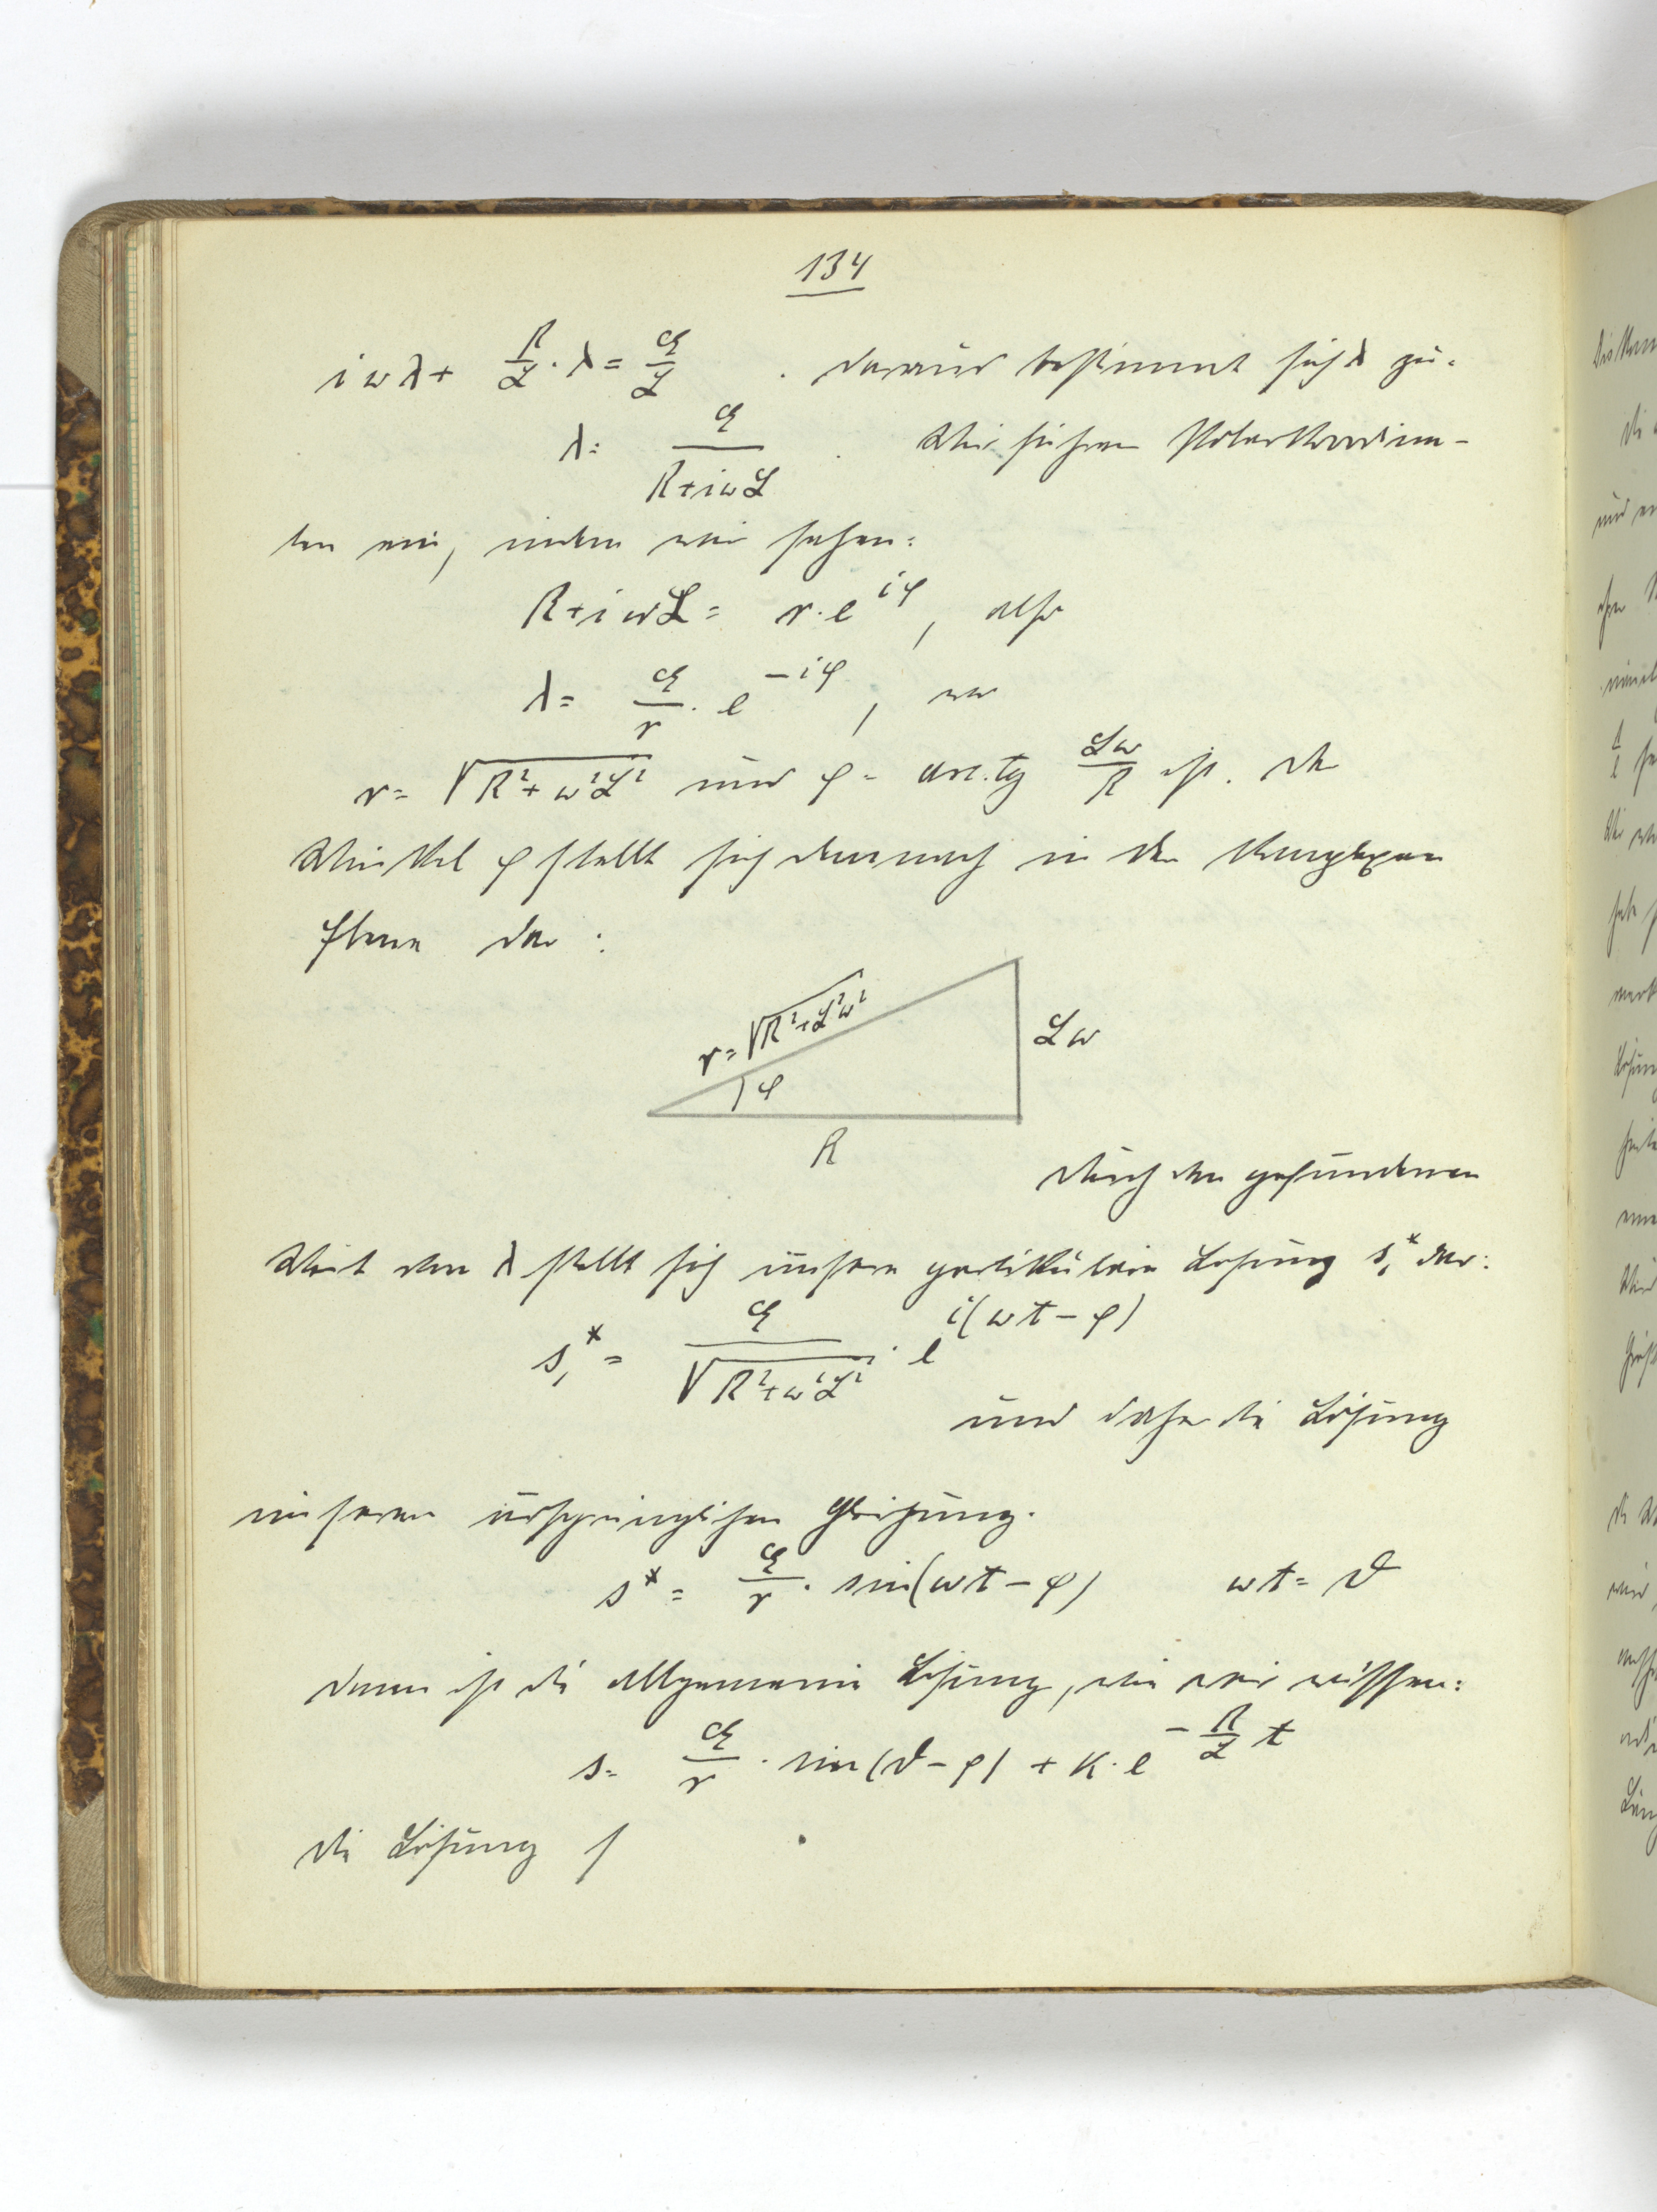 134
iωλ + R/L · λ = E/L . daraus bestimmt sich λ zu:
λ = E/(R+iωL) . Wir führen Polarkoordina-
ten ein, indem wir setzen:
R+iωL = r·e^{iφ}, also
λ = E/r · e^{-iφ}, wo
r = √(R²+ω²L²) und φ = arc.tg Lω/R ist. Der
Winkel φ stellt sich demnach in der komplexen
Ebene dar:
r=√(R²+L²ω²)
Lω
φ
R
Durch den gefundenen
Wert von λ stellt sich unsere partikuläre Lösung s₁* dar:
s₁* = E/√(R²+ω²L²) · e^{i(ωt-φ)}
und daher die Lösung
unserer ursprünglichen Gleichung.
s* = E/r · sin(ωt-φ) ωt = ϑ
dann ist die allgemeine Lösung, wie wir wissen:
s = E/r · sin(ϑ-φ) + K·e^{-R/L t}
die Lösung